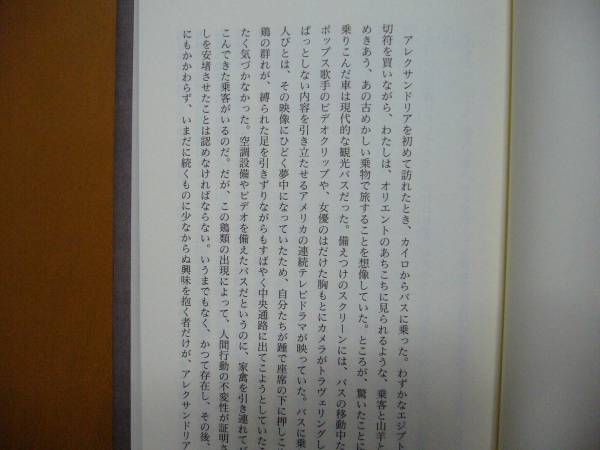 アレクサンドリアを初めて訪れたとき、カイロからバスに乗った。わずかなエジプト
切符を買いながら、わたしは、オリエントのあちこちに見られるような、乗客と山羊と
めきあう、あの古めかしい乗物で旅することを想像していた。ところが、驚いたことに
乗りこんだ車は現代的な観光バスだった。備えつけのスクリーンには、バスの移動中た
ポップス歌手のビデオクリップや、女優のはだけた胸もとにカメラがトラヴェリングし
ぱっとしない内容を引き立たせるアメリカの連続テレビドラマが映っていた。バスに乗
人びとは、その映像にひどく夢中になっていたため、自分たちが踵で座席の下に押しこ
鶏の群れが、縛られた足を引きずりながらもすばやく中央通路に出てこようとしていたこ
たく気づかなかった。空調設備やビデオを備えたバスだというのに、家禽を引き連れて
こんできた乗客がいるのだ。だが、この鶏類の出現によって、人間行動の不変性が証明さ
しを安堵させたことは認めなければならない。いうまでもなく、かつて存在し、その後、
にもかかわらず、いまだに続くものに少なからぬ興味を抱く者だけが、アレクサンドリア